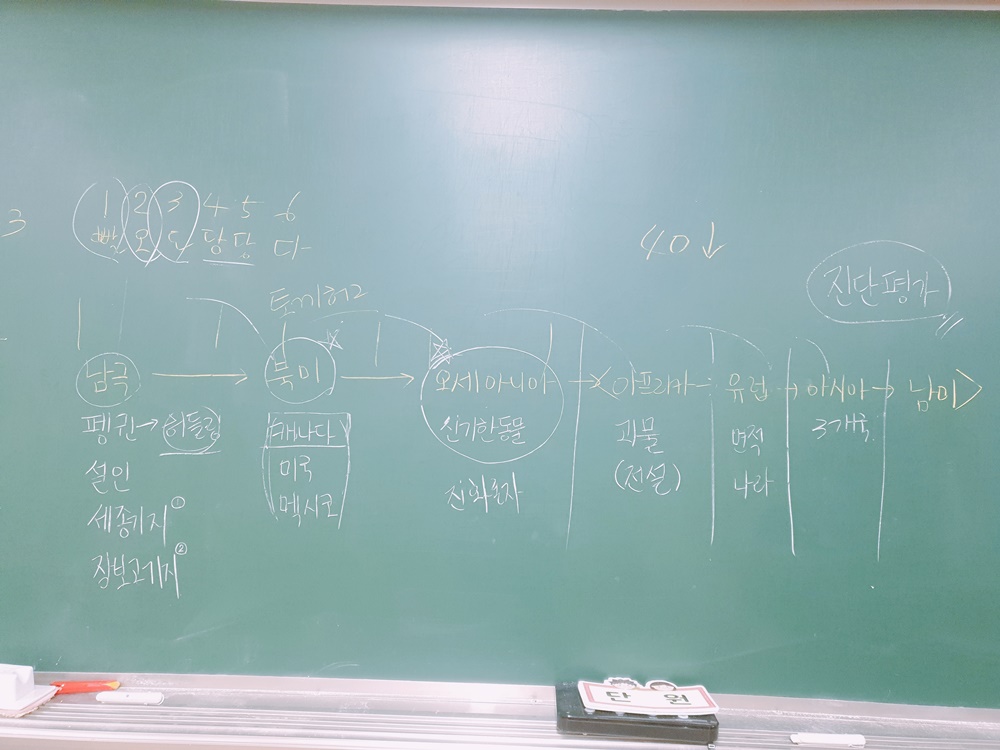 3
1 2 3 4 5 6
빨 오 노 당당 다
40↓
토끼허그
진단평가
남극 → 북미 → 오세아니아 → 아프리카 - 유럽 → 아시아 → 남미
펭귄→허들링
캐나다
신기한동물
괴물
면적
3개국
설인
미국
진화론자
(전설)
나라
세종기지①
멕시코
장보고기지②
단 원